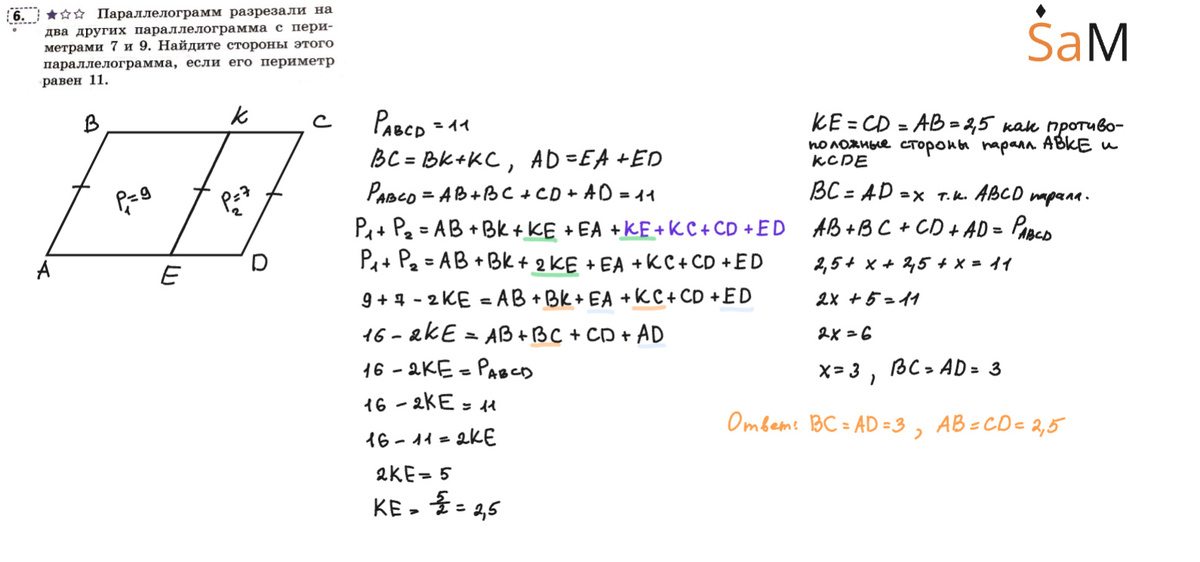 6. ★☆☆ Параллелограмм разрезали на
два других параллелограмма с пери-
метрами 7 и 9. Найдите стороны этого
параллелограмма, если его периметр
равен 11.
SaM
B K C
P₁=9 P₂=7
A E D
P_ABCD = 11
BC = BK+KC, AD = EA+ED
P_ABCD = AB+BC+CD+AD = 11
P₁+P₂ = AB+BK+KE+EA+KE+KC+CD+ED
P₁+P₂ = AB+BK+2KE+EA+KC+CD+ED
9+7-2KE = AB+BK+EA+KC+CD+ED
16-2KE = AB+BC+CD+AD
16-2KE = P_ABCD
16-2KE = 11
16-11 = 2KE
2KE = 5
KE = 5/2 = 2,5
KE = CD = AB = 2,5 как противо-
положные стороны паралл ABKE и
KCDE
BC = AD = x т.к. ABCD паралл.
AB+BC+CD+AD = P_ABCD
2,5+x+2,5+x = 11
2x+5 = 11
2x = 6
x = 3, BC = AD = 3
Ответ: BC = AD = 3, AB = CD = 2,5